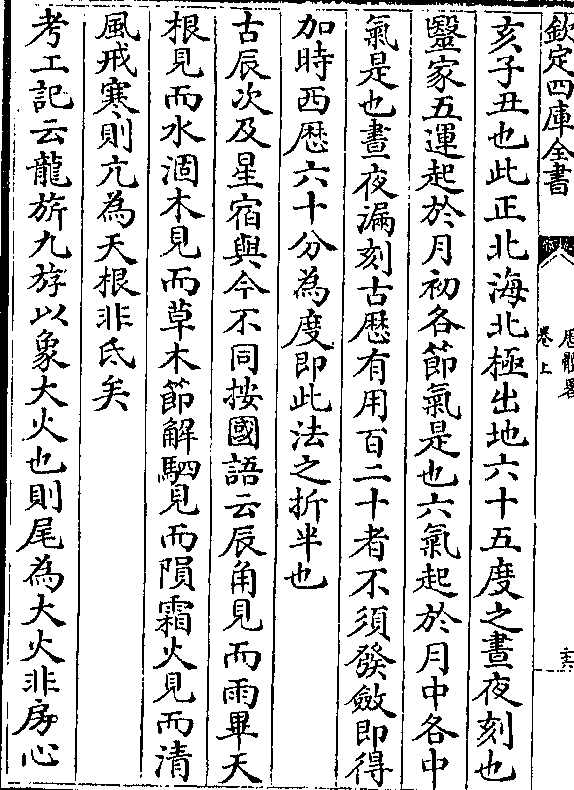 欽定四庫全書
曆體略
卷上
亥子丑也此正北海北極出地六十五度之晝夜刻也
醫家五運起於月初各節氣是也六氣起於月中各中
氣是也晝夜漏刻古厯有用百二十者不須發斂即得
加時西厯六十分為度即此法之折半也
古辰次及星宿與今不同按國語云辰角見而雨畢天
根見而水涸木見而草木節解駟見而隕霜火見而清
風戒寒則亢為天根非氐矣
考工記云龍旂九斿以象大火也則尾為大火非房心